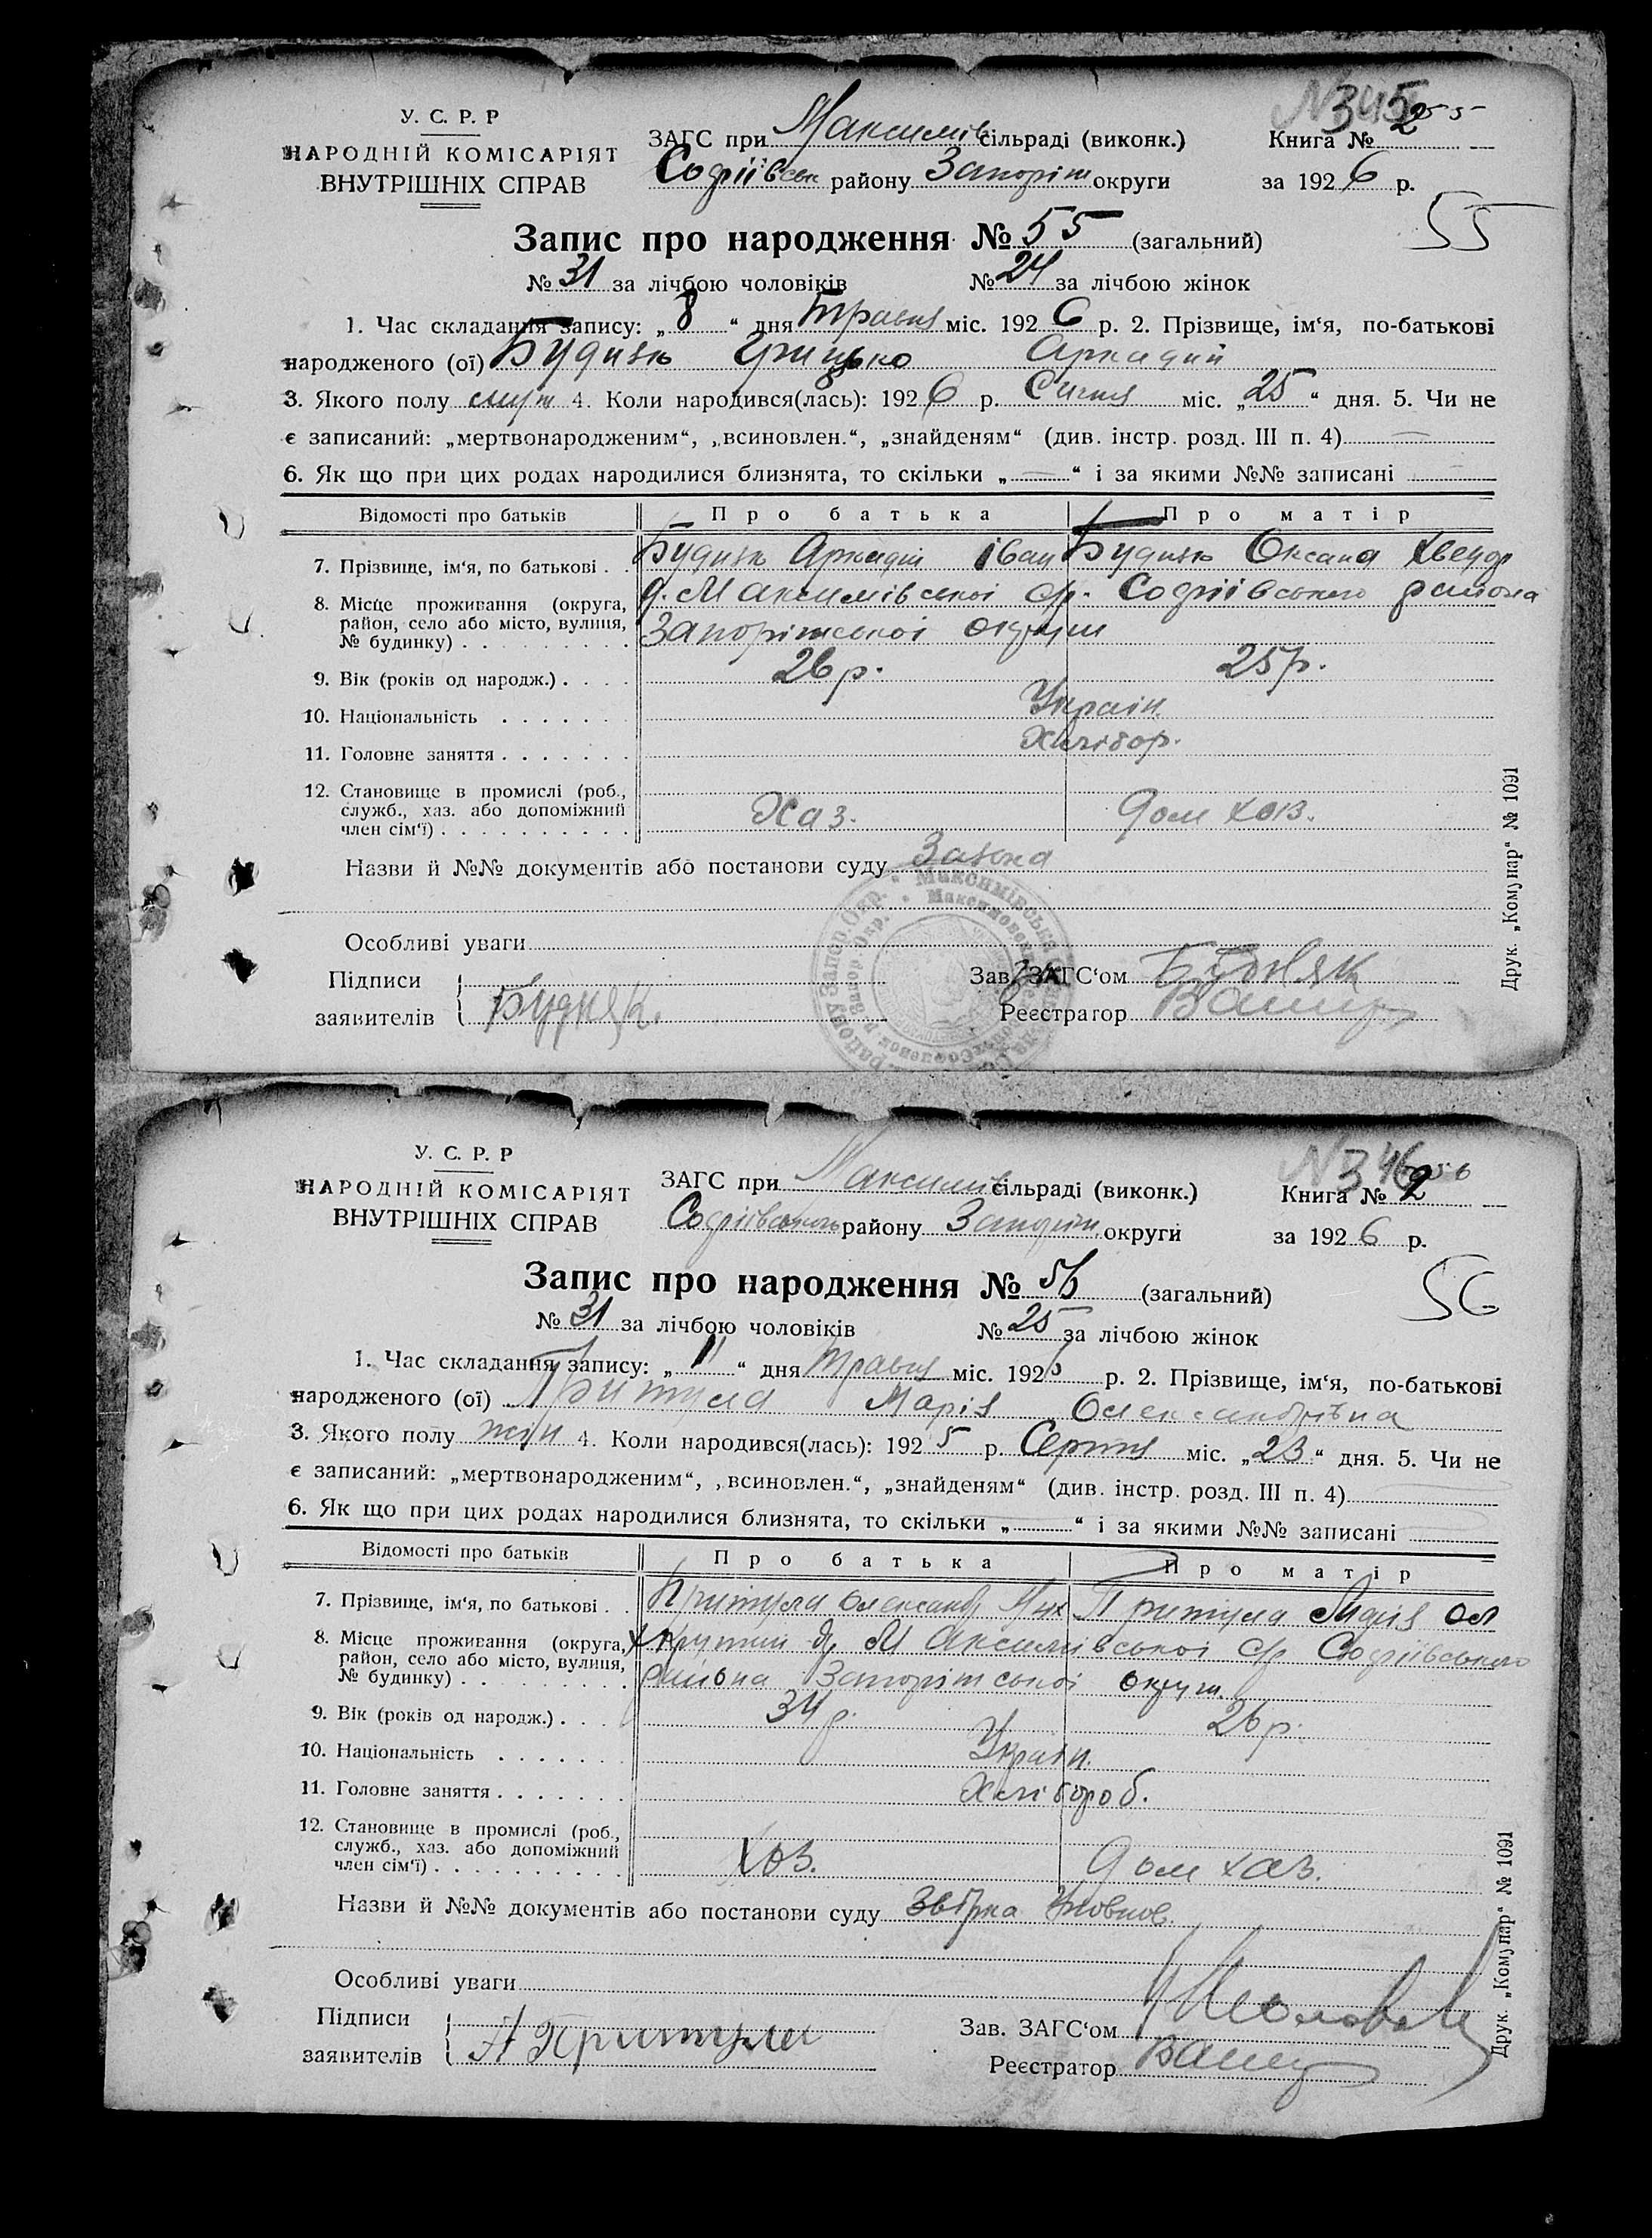 №345
255
У. С. Р. Р
НАРОДНІЙ КОМІСАРІЯТ
ВНУТРІШНІХ СПРАВ
ЗАГС при Максимів сільраді (виконк.)
Софіївськ району Запоріж округи
Книга № 2
за 1926 р.
55
Запис про народження № 55 (загальний)
№ 31 за лічбою чоловіків № 24 за лічбою жінок
1. Час складання запису: „8“ дня Травня міс. 1926 р. 2. Прізвище, ім‘я, по-батькові
народженого (ої) Будняк Грицько Аркадий
3. Якого полу 4. Коли народився(лась): 1926 р. Січня міс. „25“ дня. 5. Чи не
є записаний: „мертвонародженим“, „всиновлен.“, „знайденям“ (див. інстр. розд. III п. 4)
6. Як що при цих родах народилися близнята, то скільки „—“ і за якими №№ записані —
Відомості про батьків Про батька Про матір
7. Прізвище, ім‘я, по батькові . . Будняк Аркадій Іван Будняк Оксана Хведор
8. Місце проживання (округа, район, село або місто, вулиця, № будинку) . . . . . . . . . д. Максимівської с/р. Софіївського района
Запоріжської округи
9. Вік (років од народж.) . . . . 26 р. 25 р.
10. Національність . . . . . . . Україн.
11. Головне заняття . . . . . . . Хлібор.
12. Становище в промислі (роб., служб., хаз. або допоміжний член сім‘ї) . . . . . . . . . . Хаз. дом хоз.
Назви й №№ документів або постанови суду
Особливі уваги
Підписи
заявителів Будняк.
Зав. ЗАГС‘ом Будняк
Реєстратор
Друк. „Комунар“ № 1091
№346
256
У. С. Р. Р
НАРОДНІЙ КОМІСАРІЯТ
ВНУТРІШНІХ СПРАВ
ЗАГС при Максимів сільраді (виконк.)
Софіївського району Запоріж. округи
Книга № 2
за 1926 р.
56
Запис про народження № 56 (загальний)
№ 31 за лічбою чоловіків № 25 за лічбою жінок
1. Час складання запису: „11“ дня Травня міс. 1926 р. 2. Прізвище, ім‘я, по-батькові
народженого (ої) Притула Марія Олександрівна
3. Якого полу жін 4. Коли народився(лась): 1925 р. Серпня міс. „23“ дня. 5. Чи не
є записаний: „мертвонародженим“, „всиновлен.“, „знайденям“ (див. інстр. розд. III п. 4)
6. Як що при цих родах народилися близнята, то скільки „“ і за якими №№ записані
Відомості про батьків Про батька Про матір
7. Прізвище, ім‘я, по батькові . . Притула Олександ Мих Притула Марія Ол
8. Місце проживання (округа, район, село або місто, вулиця, № будинку) . . . . . . . . . Максимівської с/р Софіївського
района Запоріжської округи.
9. Вік (років од народж.) . . . . 34 р. 26 р.
10. Національність . . . . . . . Україн.
11. Головне заняття . . . . . . . Хлібороб.
12. Становище в промислі (роб., служб., хаз. або допоміжний член сім‘ї) . . . . . . . . . . Хоз. дом хаз.
Назви й №№ документів або постанови суду
Особливі уваги
Підписи
заявителів А Притула
Зав. ЗАГС‘ом
Реєстратор
Друк. „Комунар“ № 1091